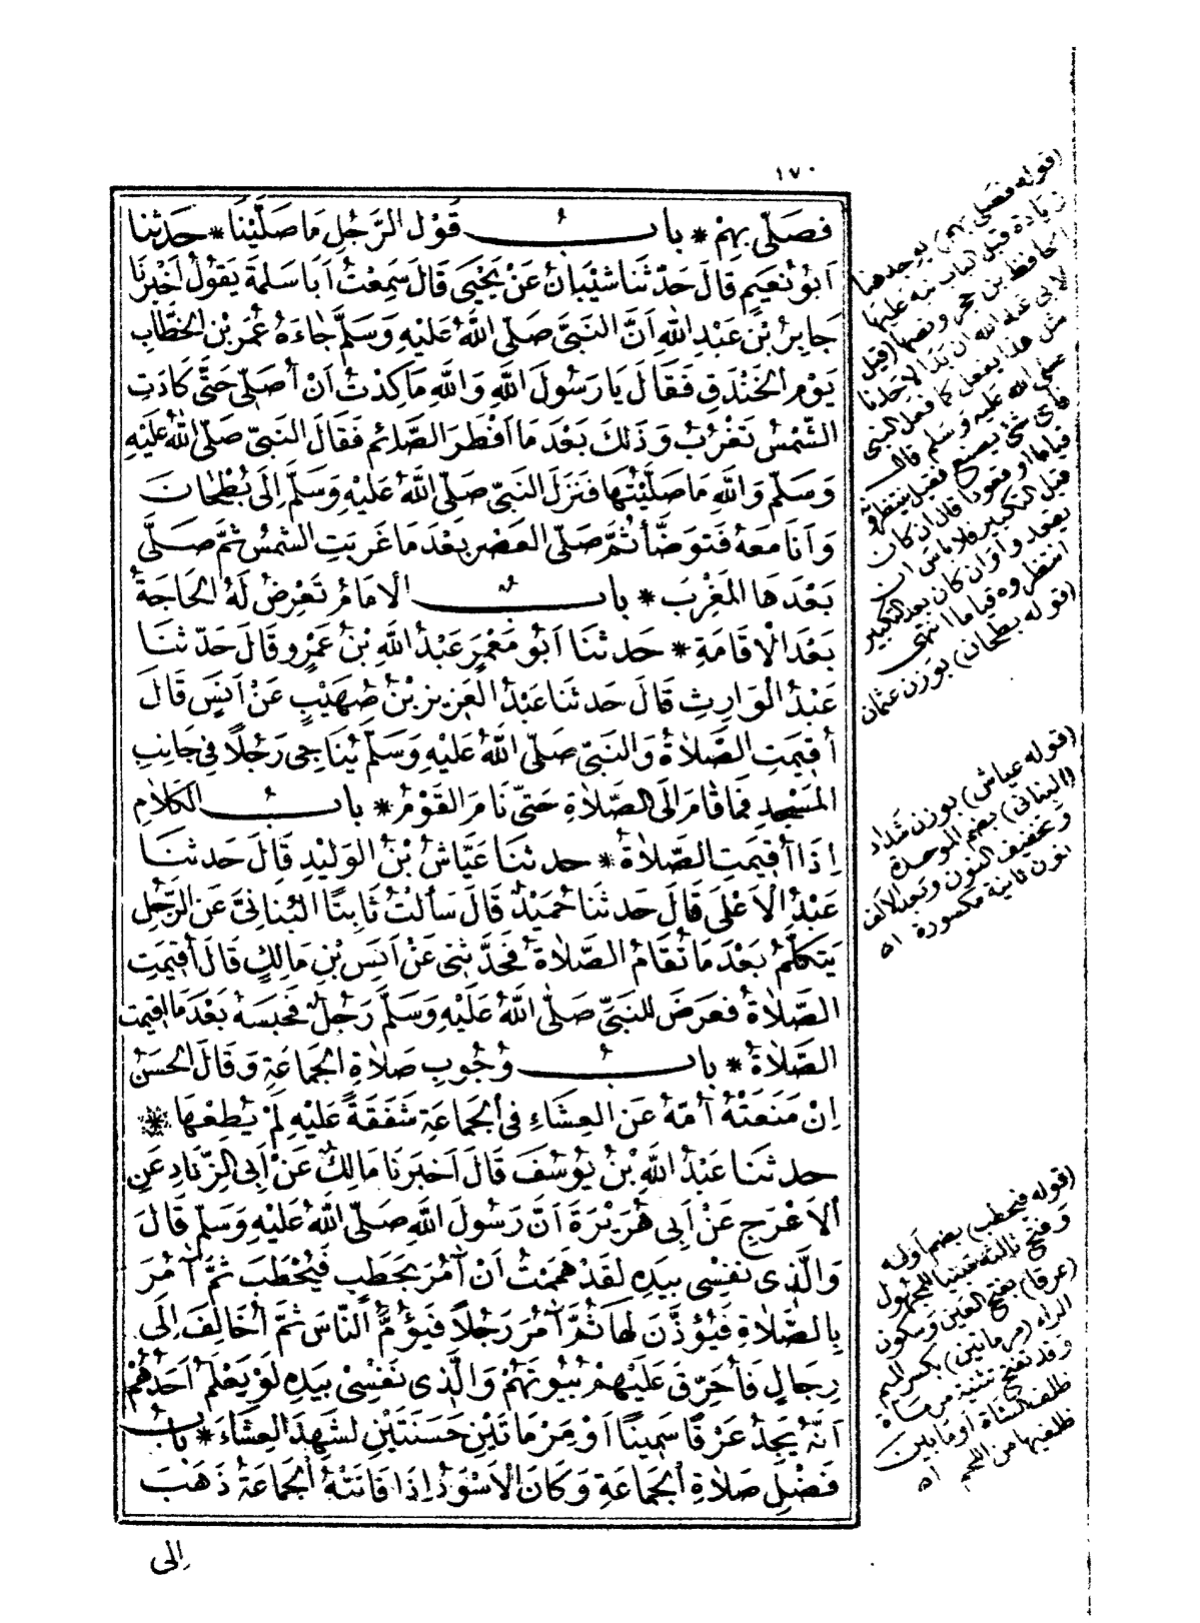 ١٧٠
فَصَلَّى بِهِمْ * بابُ قَوْلِ الرَّجُلِ مَا صَلَّيْنَا * حَدثنا
اَبُو نُعَيمٍ قَالَ حَدّثنَا شَيْبانُ عَنْ يَحْيَى قَالَ سَمِعْتُ اَبَا سَلَمَةَ يَقُولُ اَخْبرنَا
جَابِرُ بْنُ عَبْدِ اللهِ اَنَّ النبىَّ صَلّى اللهُ عَليْهِ وَسَلمَّ جَاءَهُ عُمَرُ بْنُ الخطَّابِ
يَوْمَ الخَنْدَقِ فَقَالَ يَا رَسُولَ اللهِ وَاللهِ مَا كِدْتُ اَنْ أُصَلّىَ حَتَّى كَادَتِ
الشَّمْسُ تَغْرُبُ وَذلِكَ بَعْدَ مَا اَفْطَرَ الصَّائِمُ فَقَالَ النبىّ صَلّى اللهُ عَليْهِ
وَسَلّم وَاللهِ مَا صَلَّيْتُهَا فَنَزَلَ النبىّ صَلّى اللهُ عَليْهِ وَسَلّم اِلَى بُطْحَانَ
وَاَنَا مَعَهُ فَتَوَضَّأَ ثُمَّ صَلّى العَصْرَ بَعْدَ مَا غَرَبَتِ الشمْسُ ثمَّ صَلَّى
بَعْدَهَا المَغْرِبَ * بابُ الاِمَامِ تَعْرِضُ لَهُ الحَاجَةُ
بَعْدَ الْاِقَامَةِ * حَدثنَا اَبُو مَعْمَرٍ عَبْدُ اللهِ بْنُ عَمْرٍو قَالَ حَدّثنَا
عَبْدُ الْوَارِثِ قَالَ حَدثنَا عَبْدُ العَزِيزِ بْنُ صُهَيْبٍ عَنْ اَنَسٍ قَالَ
أُقِيمَتِ الصَّلاَةُ وَالنبىّ صَلّى اللهُ عَليْهِ وَسَلّم يُنَاجِى رَجُلاً فِى جَانِبِ
المَسْجِدِ فَمَا قَامَ اِلَى الصَّلاَةِ حَتىّ نَامَ القَوْمُ * بابُ الكَلاَمِ
اِذَا أُقِيمَتِ الصَّلاَةُ * حدثنَا عَيَّاشُ بْنُ الوَلِيْدِ قَالَ حَدثنَا
عَبْدُ الاَعْلَى قَالَ حَدثنَا حُمَيْدٌ قَالَ سَأَلْتُ ثَابِتًا البُنَانِىَّ عَنِ الرَّجُلِ
يَتَكَلَّمُ بَعْدَ مَا تُقَامُ الصَّلاَةُ فَحَدَّثَنِى عَنْ اَنَسِ بْنِ مَالِكٍ قَالَ أُقِيمَتِ
الصَّلاَةُ فعَرَضَ لِلنَبىِّ صَلّى اللهُ عَلَيْهِ وَسَلَّمَ رَجُلٌ فَحَبَسَهُ بَعْدَ مَا اُقِيمَتِ
الصَّلاَةُ * بابُ وُجُوبِ صَلاَةِ الجَمَاعَةِ وَقَالَ الحَسَنُ
اِنْ مَنَعَتْهُ اُمُّهُ عَنِ العِشَاءِ فِى الجَمَاعَةِ شَفَقَةً عَلَيْهِ لَمْ يُطِعْهَا *
حدثنَا عَبْدُ اللهِ بْنُ يُوسُفَ قَالَ اَخبَرَنَا مَالِكٌ عَنْ اَبِى الزِّنَادِ عَنِ
الاَعْرَجِ عَنْ اَبِى هُرَيْرَةَ اَنَّ رَسُولَ اللهِ صَلّى اللهُ عَلَيْهِ وَسَلّم قَالَ
وَالَّذِى نَفْسِى بِيَدِهِ لَقَدْ هَمَمْتُ اَنْ آمُرَ بِحَطَبٍ فَيُحْطَبَ ثمَّ آمُرَ
بِالصَّلاَةِ فَيُؤَذَّنَ لَهَا ثُمَّ آمُرَ رَجُلاً فَيَؤُمَّ النَّاسَ ثمَّ أُخَالِفَ اِلَى
رِجَالٍ فَأُحَرِّقَ عَلَيْهِمْ بُيُوتَهُمْ وَالَّذِى نَفْسِى بِيَدِهِ لَوْ يَعْلَمُ اَحَدُهُمْ
اَنَّهُ يَجِدُ عَرْقًا سَمِينًا اَوْ مِرْمَاتَيْنِ حَسَنَتَيْنِ لَشَهِدَ العِشَاءَ * بابُ
فَضْلِ صَلاَةِ الجَمَاعَةِ وَكَانَ الاَسْوَدُ اِذَا فَاتَتْهُ الجَمَاعَةُ ذَهَبَ
اِلى
(قوله فصَلى بهم) يوجد هنا
زيادة قبل الباب نبه عليها
الحافظ بن حجر ونصها (قيل
لابى عبد الله ان بدا لاحدنا
مثل هذا يفعل كما فعل النبى
صلى الله عليه وسلم قال
فأى شئ يصنع فقيل ينتظرونه
قياما او قعودا قال ان كان
قبل التكبير فلا بأس ان
يقعدوا وان كان بعد التكبير
انتظروه قياما انتهى
(قوله بطحان) بوزن عثمان
(قوله عياش) بوزن شداد
(البنانى) بضم الموحدة
وتخفيف النون وبعد الالف
نون ثانية مكسورة اه
(قوله فيحطب) بضم اوله
وفتح ثالثه مبنيا للمجهول
(عرقا) بفتح العين وسكون
الراء (مرماتين) بكسر الميم
وقد تفتح تثنية مرماة
ظلف الشاة او ما بين
ظلفيها من اللحم اه